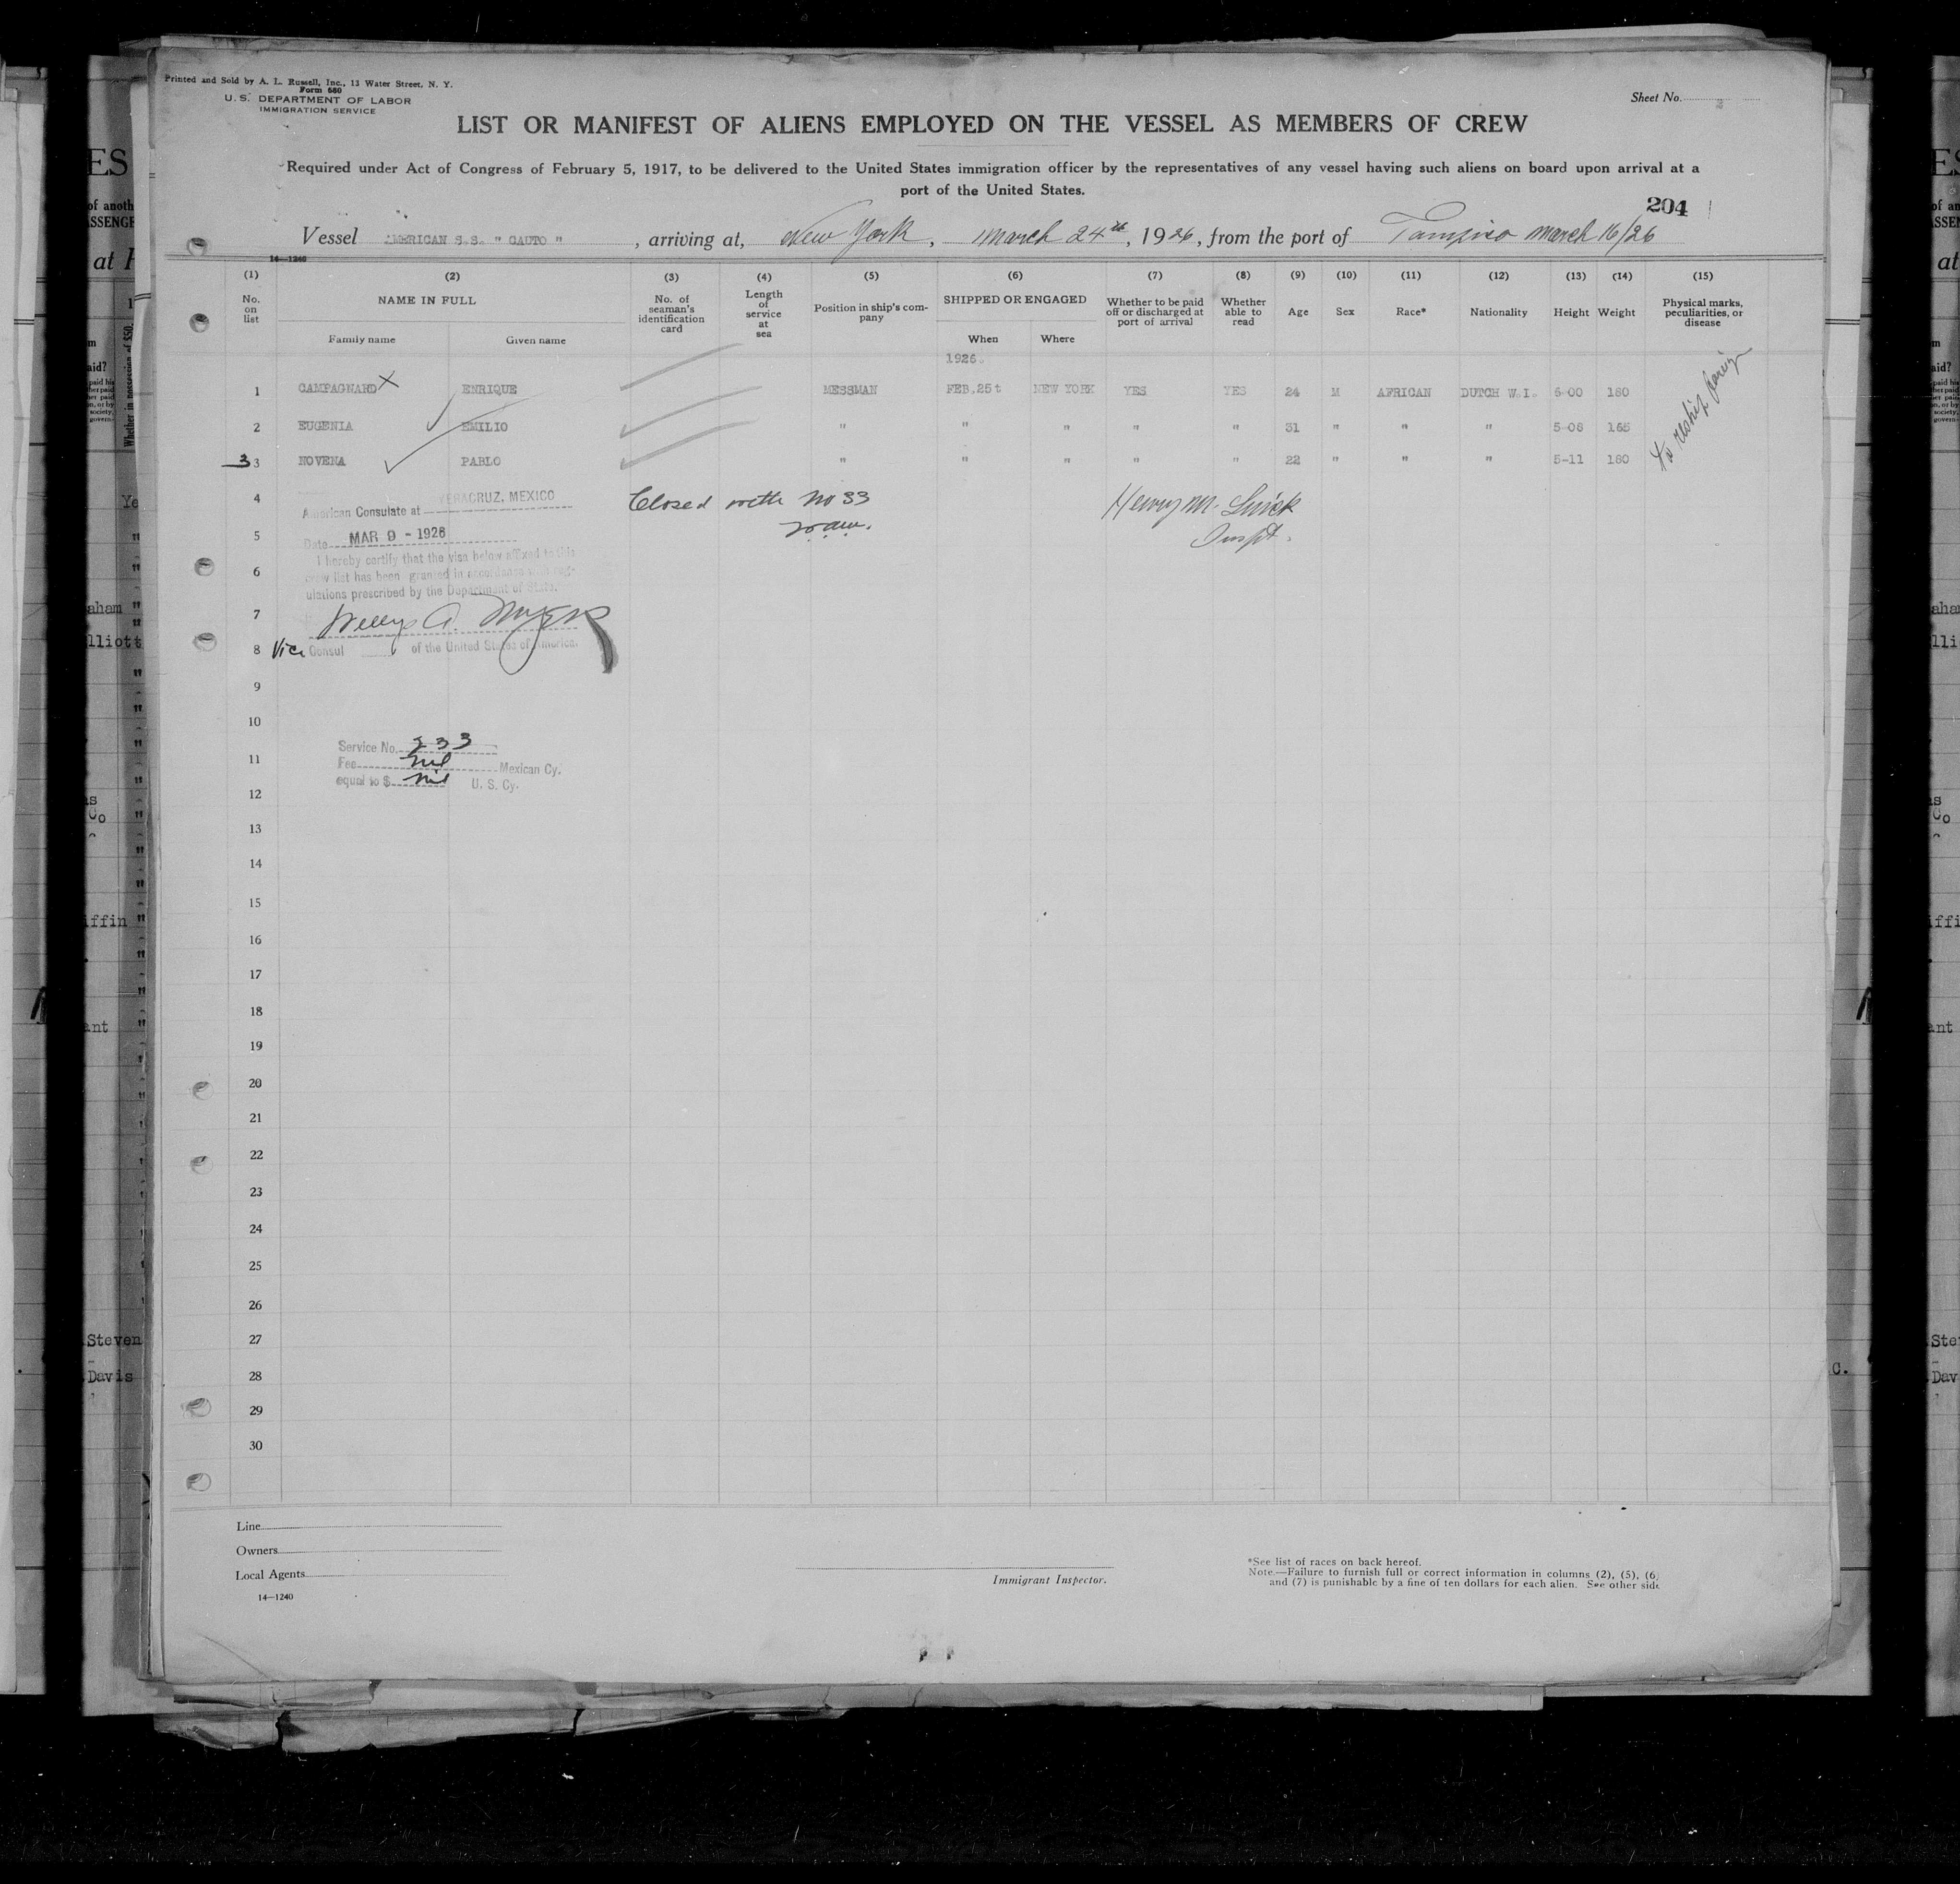 Printed and Sold by A. L. Russell, Inc., 13 Water Street, N. Y.
Form 680
U. S. DEPARTMENT OF LABOR
IMMIGRATION SERVICE
Sheet No. 2
LIST OR MANIFEST OF ALIENS EMPLOYED ON THE VESSEL AS MEMBERS OF CREW
Required under Act of Congress of February 5, 1917, to be delivered to the United States immigration officer by the representatives of any vessel having such aliens on board upon arrival at a
port of the United States.
204
Vessel AMERICAN S.S. " CAUTO " , arriving at, New York, March 24th, 1926, from the port of Tampico March 16/26
14—1240
(1) (2) (3) (4) (5) (6) (7) (8) (9) (10) (11) (12) (13) (14) (15)
No. on list NAME IN FULL Family name Given name No. of seaman's identification card Length of service at sea Position in ship's company SHIPPED OR ENGAGED When Where Whether to be paid off or discharged at port of arrival Whether able to read Age Sex Race* Nationality Height Weight Physical marks, peculiarities, or disease
1926.
1 CAMPAGNARD X ENRIQUE MESSMAN FEB.25t NEW YORK YES YES 24 M AFRICAN DUTCH W.I. 6-00 180
2 EUGENIA EMILIO " " " " " 31 " " " 5-08 165
3 3 NOVENA PABLO " " " " " 22 " " " 5-11 180
to reship foreign
4 American Consulate at VERACRUZ, MEXICO Closed with No 33 Henry M.
5 Date MAR 9 - 1926 Inspt.
I hereby certify that the visa below affixed to this
6 crew list has been granted in accordance with reg-
ulations prescribed by the Department of State.
7 Willys A. Myers
8 Vice Consul of the United States of America.
9
10
Service No. 233
11 Fee nil Mexican Cy.
equal to $ nil U. S. Cy.
12
13
14
15
16
17
18
19
20
21
22
23
24
25
26
27
28
29
30
Line
Owners
Local Agents
14—1240
Immigrant Inspector.
*See list of races on back hereof.
Note.—Failure to furnish full or correct information in columns (2), (5), (6)
and (7) is punishable by a fine of ten dollars for each alien. See other side